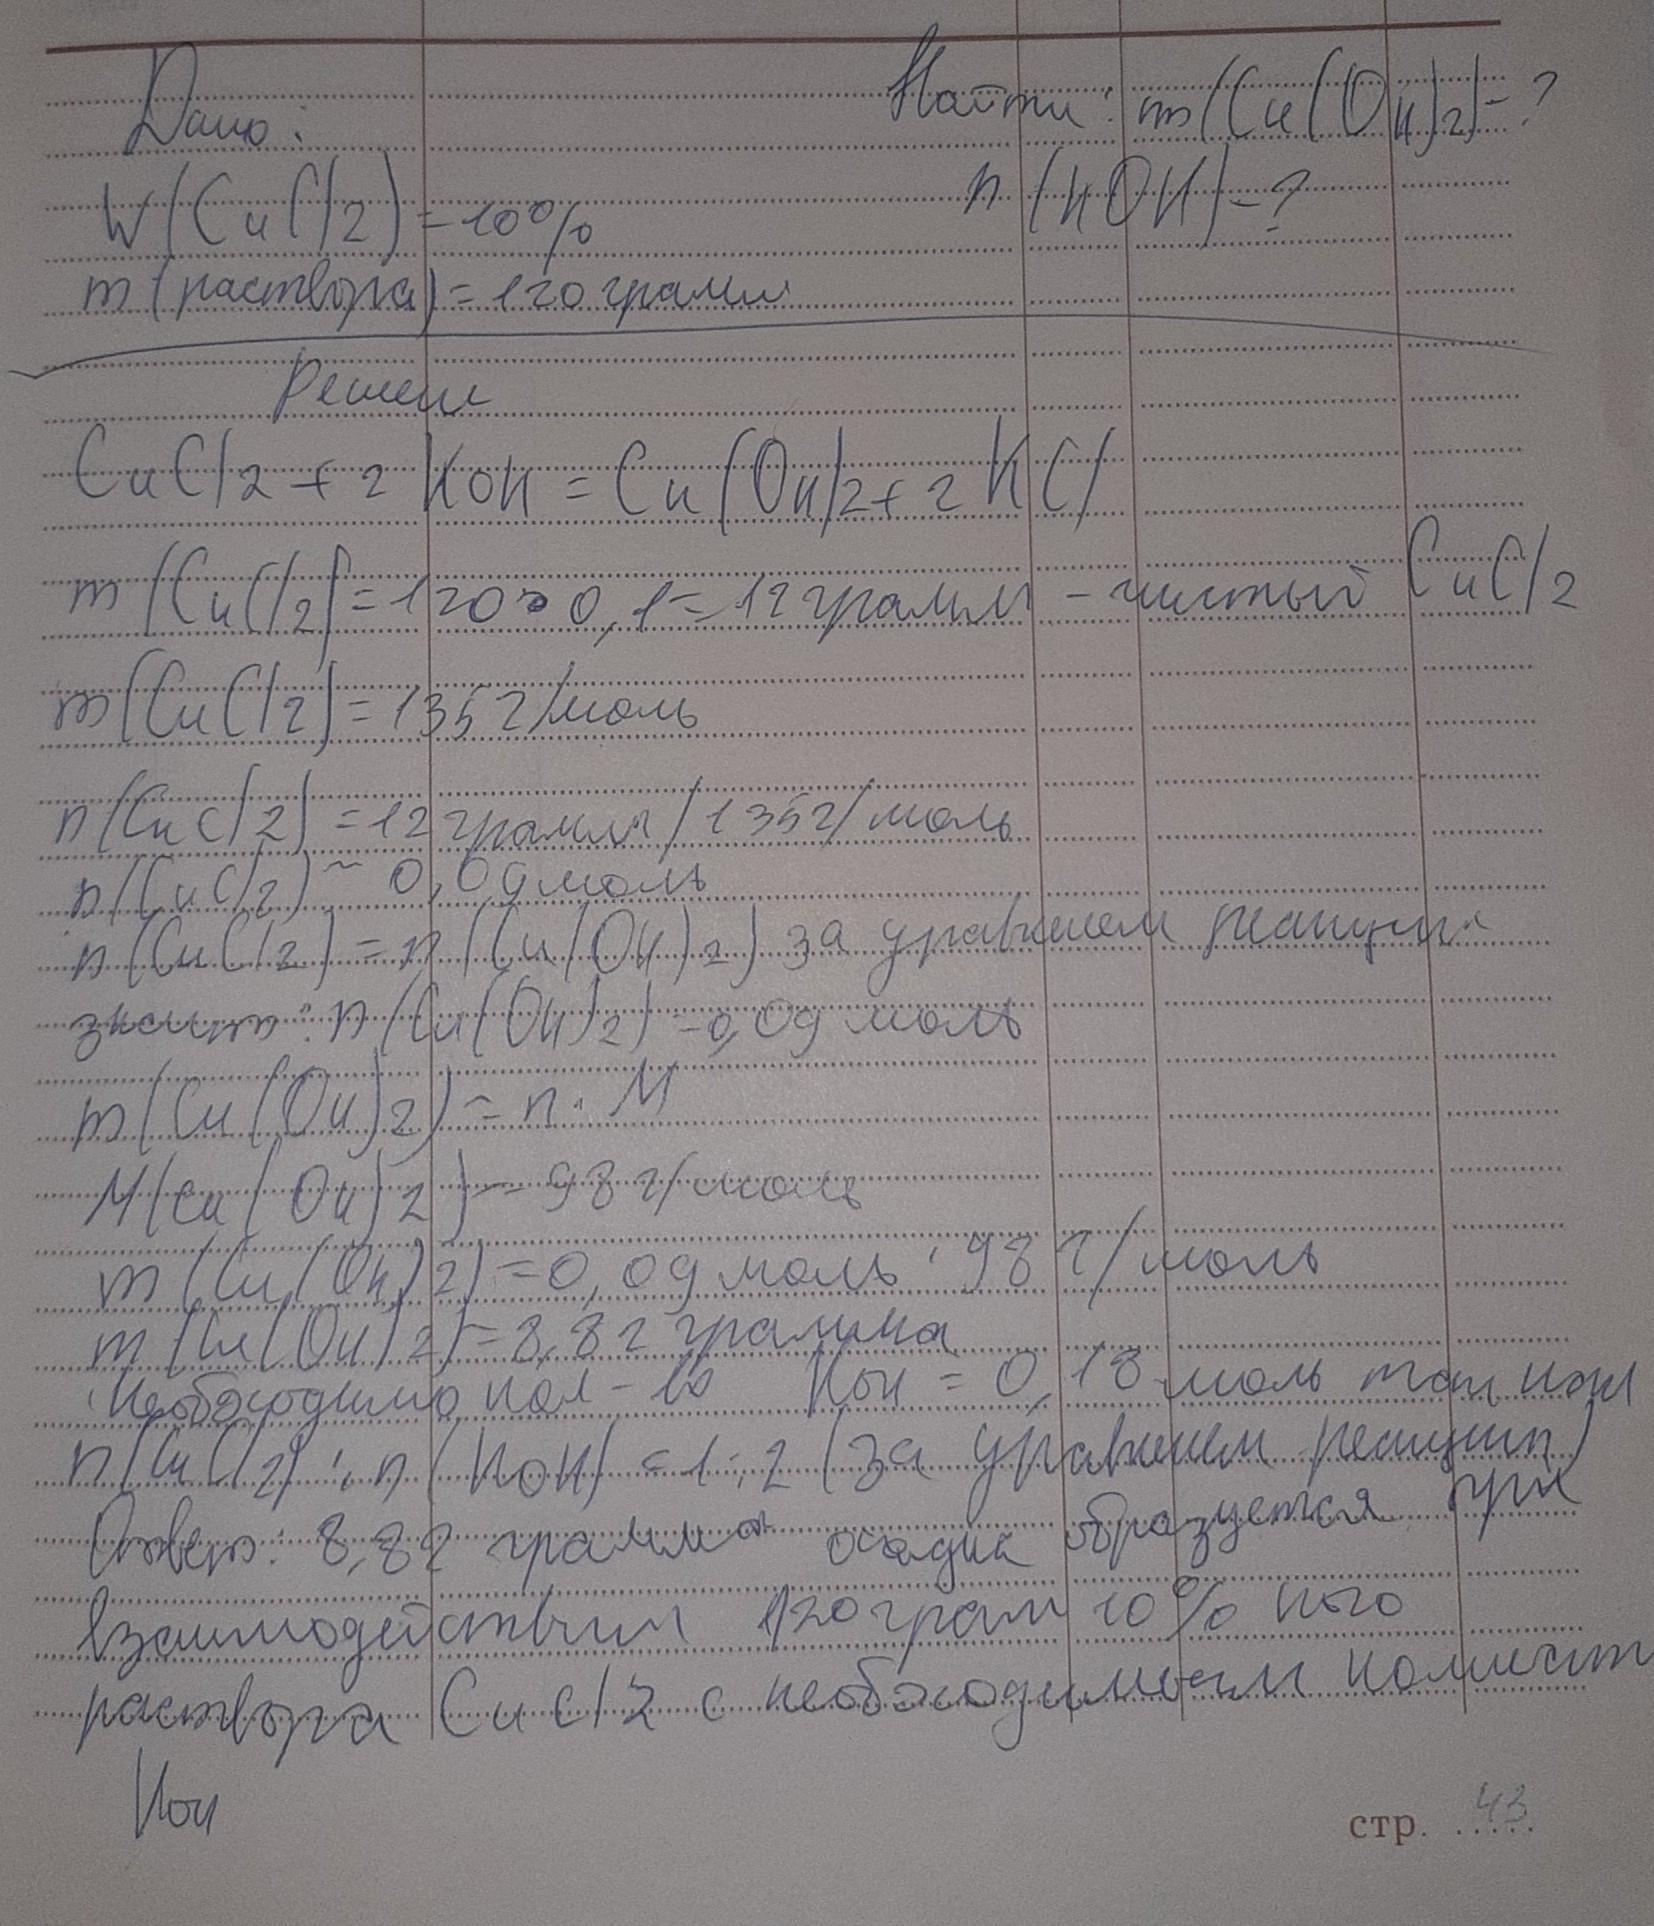 Дано:
Найти: m(Cu(OH)2)-?
W(CuCl2)=10%
n(KOH)-?
m(раствора)=120 грамм
Решен
CuCl2+2KOH=Cu(OH)2+2KCl
m(CuCl2)=120•0,1=12 граммы - чистый CuCl2
m(CuCl2)=135 г/моль
n(CuCl2)=12 граммы/135 г/моль
n(CuCl2)~0,09 моль
n(CuCl2)=n(Cu(OH)2) за уравнением реакции
значит: n(Cu(OH)2)-0,09 моль
m(Cu(OH)2)=n·M
M(Cu(OH)2)=98 г/моль
m(Cu(OH)2)=0,09 моль·98 г/моль
m(Cu(OH)2)=8,82 грамма
Необходимо кол-во KOH=0,18 моль так как
n(CuCl2):n(KOH)=1:2 (за уравнием реакции)
Ответ: 8,82 грамма осадка образуется при
взаимодействии 120 грам 10% ного
раствора CuCl2 с необходимым количест
KOH
стр. 43